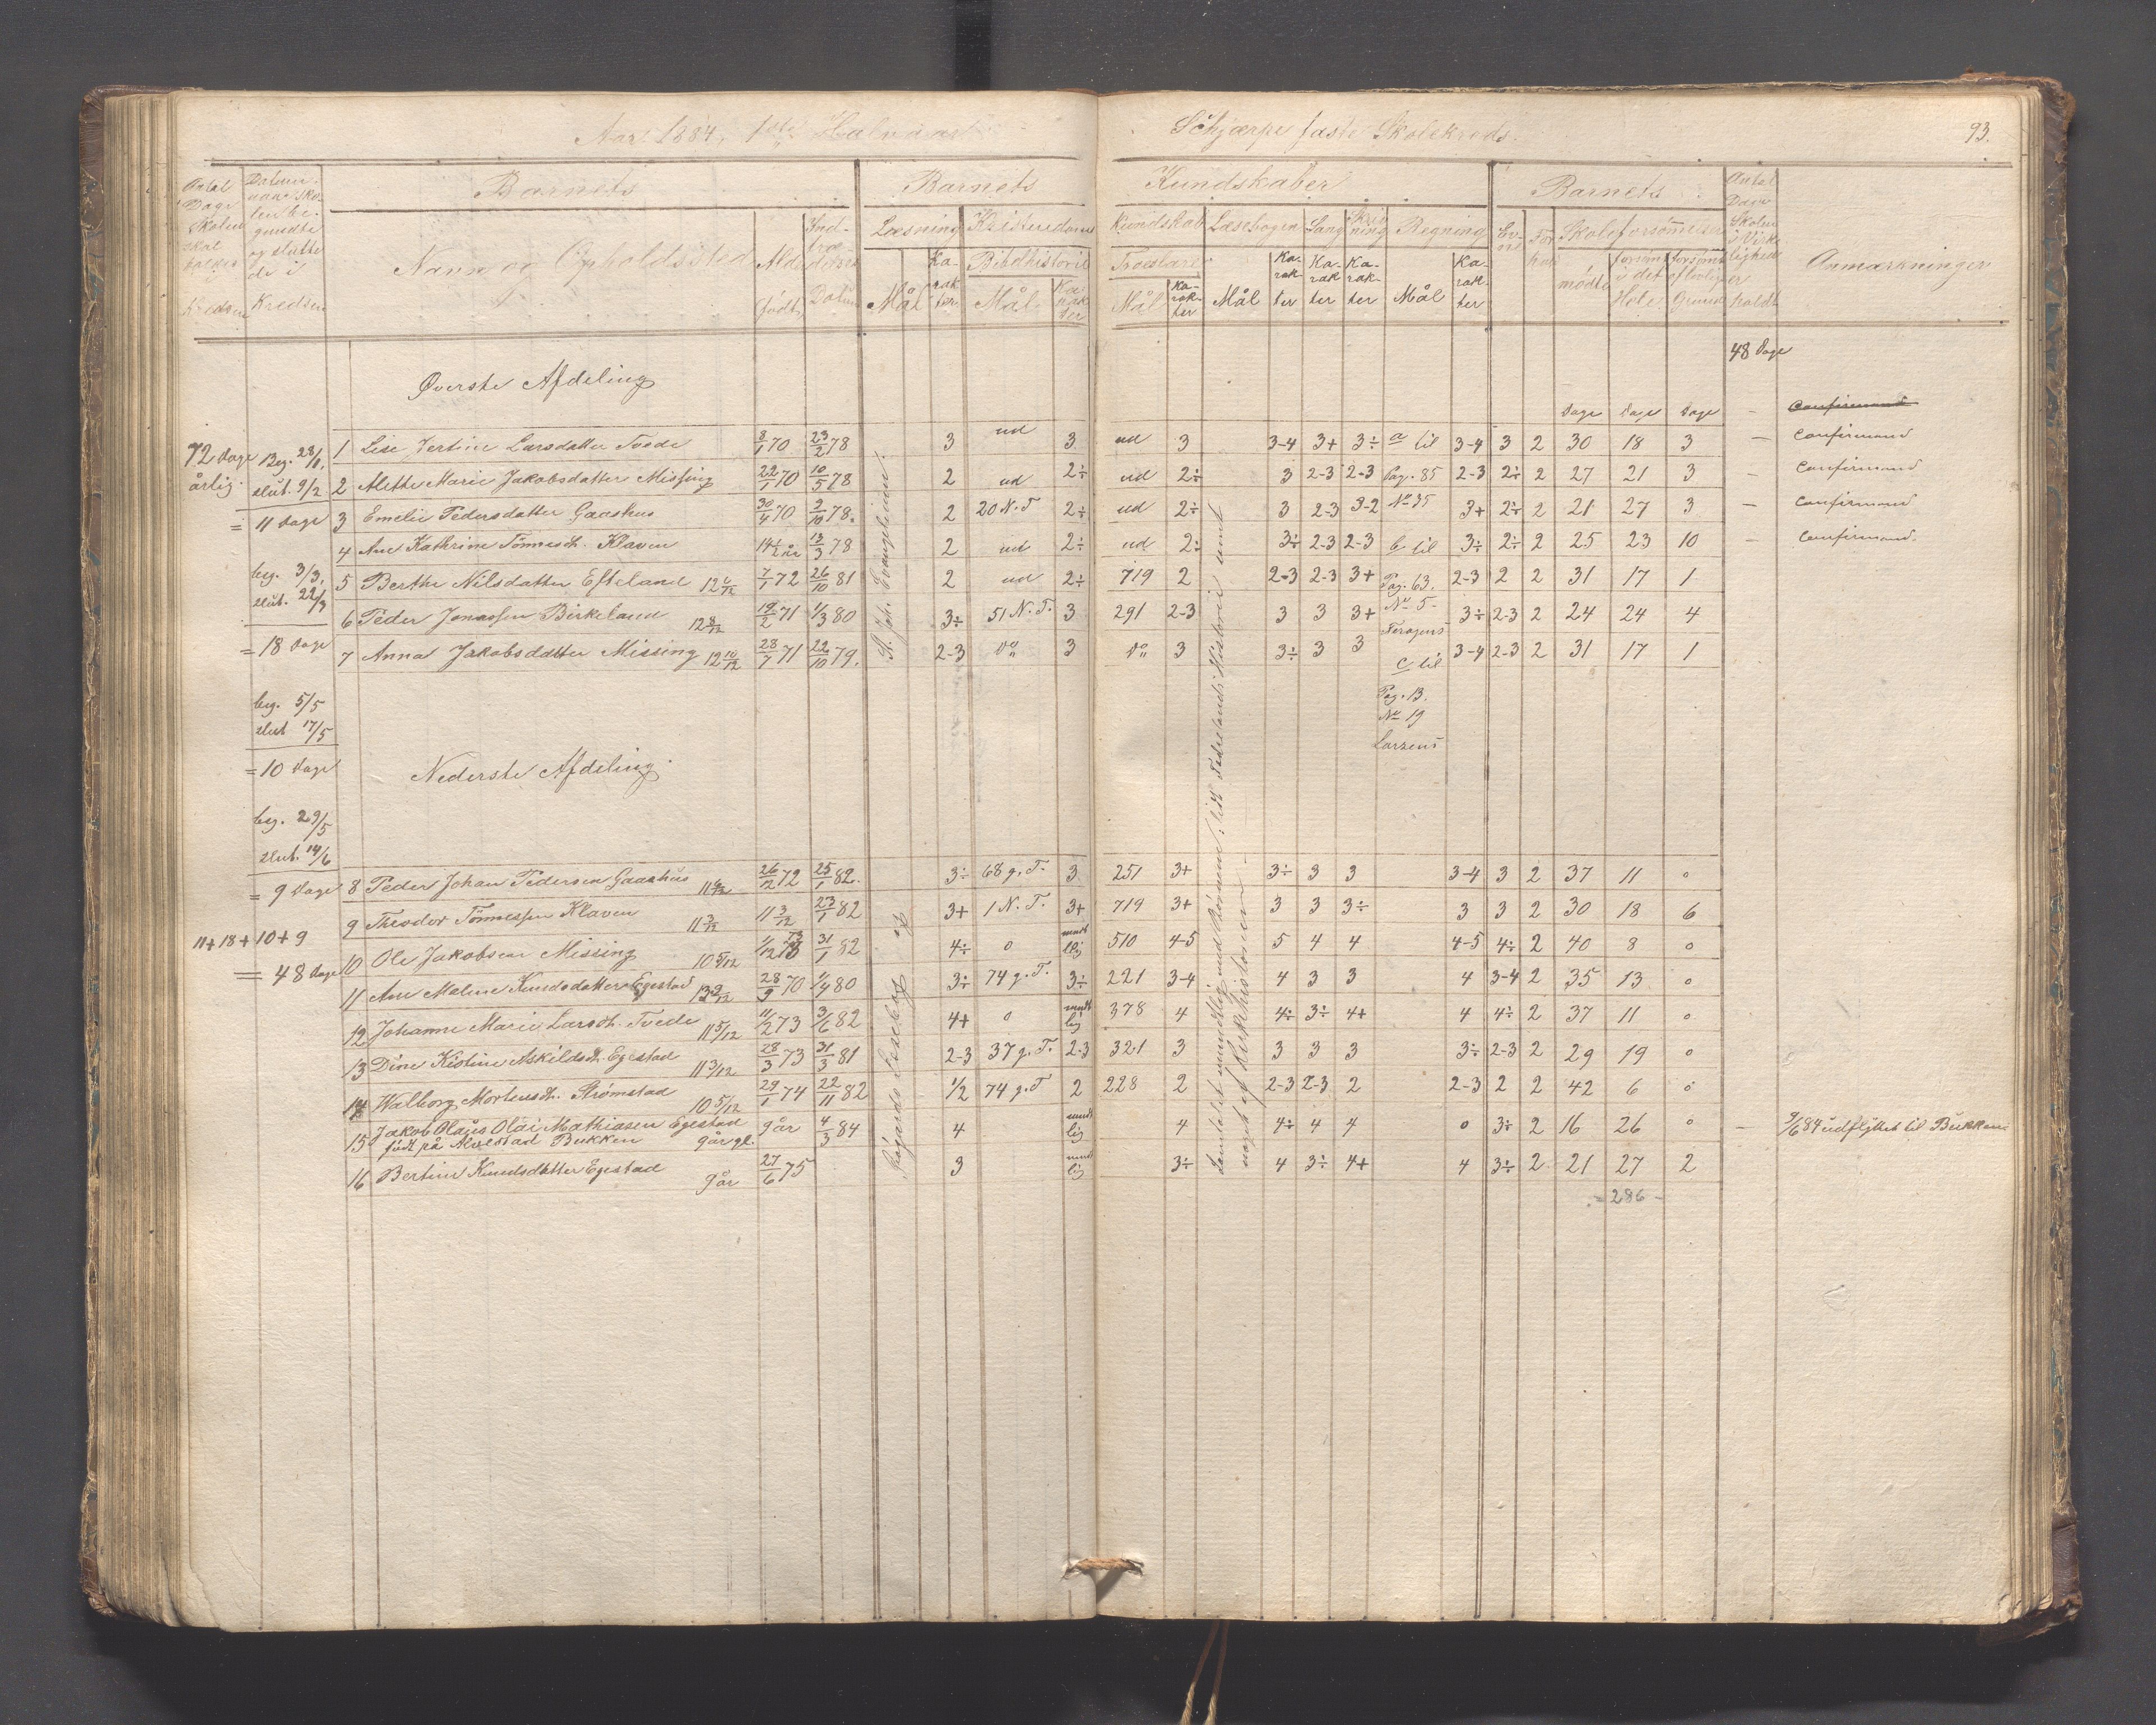 Aar 1884, 1ste Halvaar
Schjærpe faste Skolekreds.
93.
Antal Dage Skolen skal holdes Kredsen
Datum naar Skolen begyndte og sluttede i Kredsen
Barnets
Barnets
Kundskaber
Barnets
Antal Dage Skolen i Virkligheden holdt
Anmærkninger
Navn og Opholdssted
Alder
født
Indtrædelses Datum
Læsning
Mål
Karakter
Kristendoms
Bibelhistorie
Mål
Karakter
Kundskab
Troeslære
Mål
Karakter
Læsebogen
Mål
Karakter
Sang
Karakter
Skrivning
Karakter
Regning
Mål
Karakter
Evne
Forhold
Skoleforsømmelser
mødte
forsømt i det Hele
forsømt af lovlig Grund
48 Dage
Øverste Afdeling
Dage Dage Dage
72 Dage årlig.
Beg. 28/1.
slut. 9/2
= 11 Dage
beg. 3/3.
slut. 22/3
= 18 Dage
beg. 5/5
slut 17/5
= 10 Dage
beg. 29/5
slut. 14/6
= 9 Dage
11 + 18 + 10 + 9
= 48 Dage
Confirmand
1 Lise Jertine Larsdatter Tvede 8/1 70 23/2 78 3 ud 3 ud 3 3-4 3+ 3÷ a til 3-4 3 2 30 18 3 – Confirmand
2 Alette Marie Jakobsdatter Missing 22/1 70 10/5 78 2 ud 2÷ ud 2÷ 3 2-3 2-3 Pag. 85 2-3 2÷ 2 27 21 3 – Confirmand
3 Emelie Pedersdatter Gaashus 30/4 70 2/10 78. 2 20 N. T 2÷ ud 2÷ 3 2-3 3-2 No 35 3+ 2÷ 2 21 27 3 – Confirmand
4 Ane Kathrine Tönnesd. Klaven 14 1/2 År 13/3 78 2 ud 2÷ ud 2÷ 3÷ 2-3 2-3 b til 3÷ 2÷ 2 25 23 10 – Confirmand.
5 Berthe Nilsdatter Efteland 12 6/12 7/1 72 26/10 81 2 ud 2÷ 719 2 2-3 2-3 3+ Pag. 63. 2-3 2 2 31 17 1
6 Peder Jonassen Birkeland 12 8/12 19/2 71 1/3 80 3÷ 51 N. T. 3 291 2-3 3 3 3+ No 5- 3÷ 2-3 2 24 24 4
7 Anna Jakobsdatter Missing 12 10/12 28/7 71 22/10 79. 2-3 do 3 do 3 3÷ 3 3 c til 3-4 2-3 2 31 17 1
Pag. 13.
No 19
Larsens
St. Joh. Evangelium.
Nederste Afdeling.
8 Peder Johan Pedersen Gaashus 26/12 72 25/1 82. 3÷ 68 g. T. 3 251 3+ 3÷ 3 3 3-4 3 2 37 11 0
9 Theodor Tönnessen Klaven 11 3/12 11 3/12 23/1 82 3+ 1 N. T. 3+ 719 3+ 3 3 3÷ 3 3 2 30 18 6
10 Ole Jakobsen Missing 10 5/12 1/12 73 31/1 82 4÷ 0 mundtlig 510 4-5 5 4 4 4-5 4÷ 2 40 8 0
11 Ane Maline Knudsdatter Egestad 28/9 70 1/4 80 3÷ 74 g. T. 3÷ 221 3-4 4 3 3 4 3-4 2 35 13 0
12 Johanne Marie Larsd. Tvede 11 5/12 11/2 73 3/6 82 4+ 0 mundtlig 378 4 4÷ 3÷ 4+ 4 4÷ 2 37 11 0
13 Dine Kistine Askildsd. Egestad 11 3/12 28/3 73 31/3 81 2-3 37 g. T. 2-3 321 3 3 3 3 3÷ 2-3 2 29 19 0
14 Walborg Mortensd. Strømstad 10 5/12 29/1 74 22/11 82 1/2 74 g. T 2 228 2 2-3 2-3 2 2-3 2 2 42 6 0
15 Jakob Olaus Olai Mathiasen Egestad 9 år 4/3 84 4 mundtlig 4 4÷ 4 4 0 3÷ 2 16 26 0 – 9/6 84 udflyttet til Bukken
født på Bukken 9 år gl.
16 Bertine Knudsdatter Egestad 9 år 27/6 75 3 mundtlig 3÷ 4 3÷ 4+ 4 3÷ 2 21 27 2
= 286 –